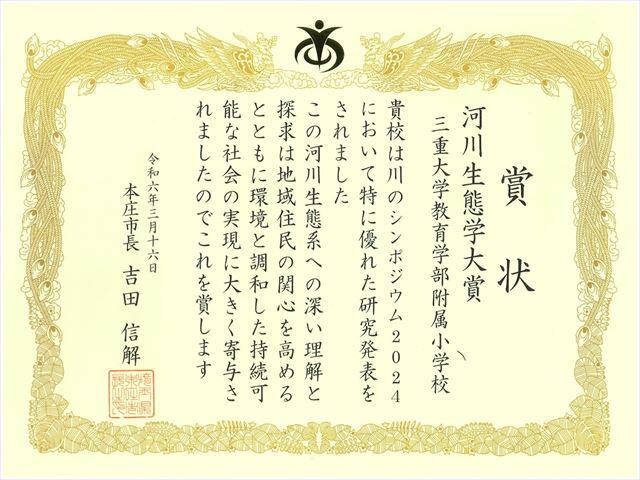 賞状
河川生態学大賞
三重大学教育学部附属小学校
貴校は川のシンポジウム2024
において特に優れた研究発表を
されました
この河川生態系への深い理解と
探求は地域住民の関心を高める
とともに環境と調和した持続可
能な社会の実現に大きく寄与さ
れましたのでこれを賞します
令和六年三月十六日
本庄市長 吉田 信解